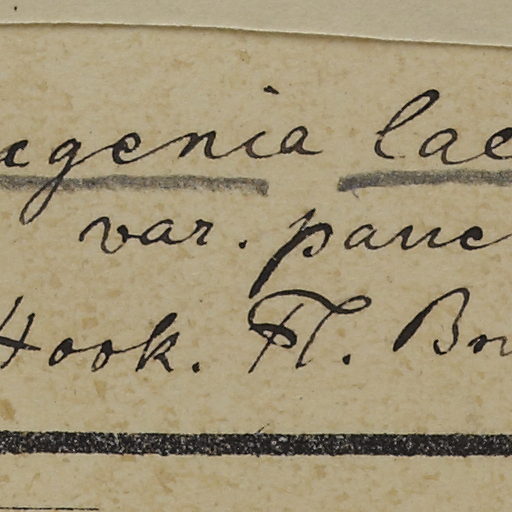 ugenia lae
var. pauc
Hook. Fl. Br